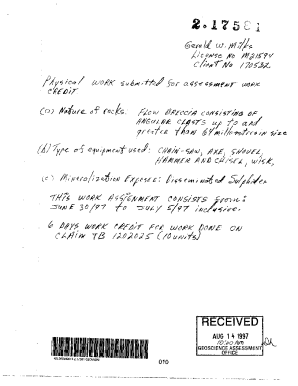 2.17581
Gerald W. Mitks
License No M21594
Client No 170582
Physical work submitted for assessment work
CREDIT.
(a) Nature of rocks. FLOW BRECCIA CONSISTING OF
ANGULAR CLASTS up to and
greater than 64 millimetres in size
(b) Type of equipment used: CHAIN-SAW, AXE, SHOVEL,
HAMMER AND CHISEL, WISK,
(c) Mineralization Exposed: Disseminated Sulphides
THIS WORK ASSIGNMENT CONSISTS from:
JUNE 30/97 to JULY 5/97 inclusive.
6 DAYS WORK CREDIT FOR WORK DONE ON
CLAIM TB 1202025 (10 units)
RECEIVED
AUG 14 1997
GEOSCIENCE ASSESSMENT
OFFICE
010